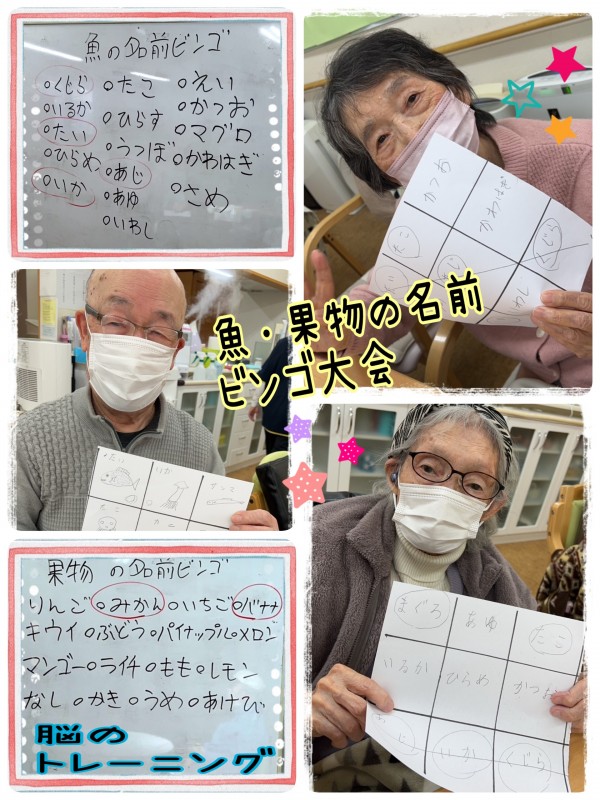 魚の名前ビンゴ
○くじら ○たこ ○えい
○いるか ○ひらす ○かつお
○たい ○うつぼ ○マグロ
○ひらめ ○あじ ○かわはぎ
○いか ○あゆ ○さめ
○いわし
かつお
かわはぎ
たこ
くじら
いわし
魚・果物の名前
ビンゴ大会
たい いか サンマ
たこ カニ
まぐろ あゆ たこ
いるか ひらめ かつお
いか くじら
果物の名前ビンゴ
りんご ○みかん ○いちご ○バナナ
キウイ ○ぶどう ○パイナップル ○メロン
マンゴー ○ライチ ○もも ○レモン
なし ○かき ○うめ ○あけび
脳の
トレーニング